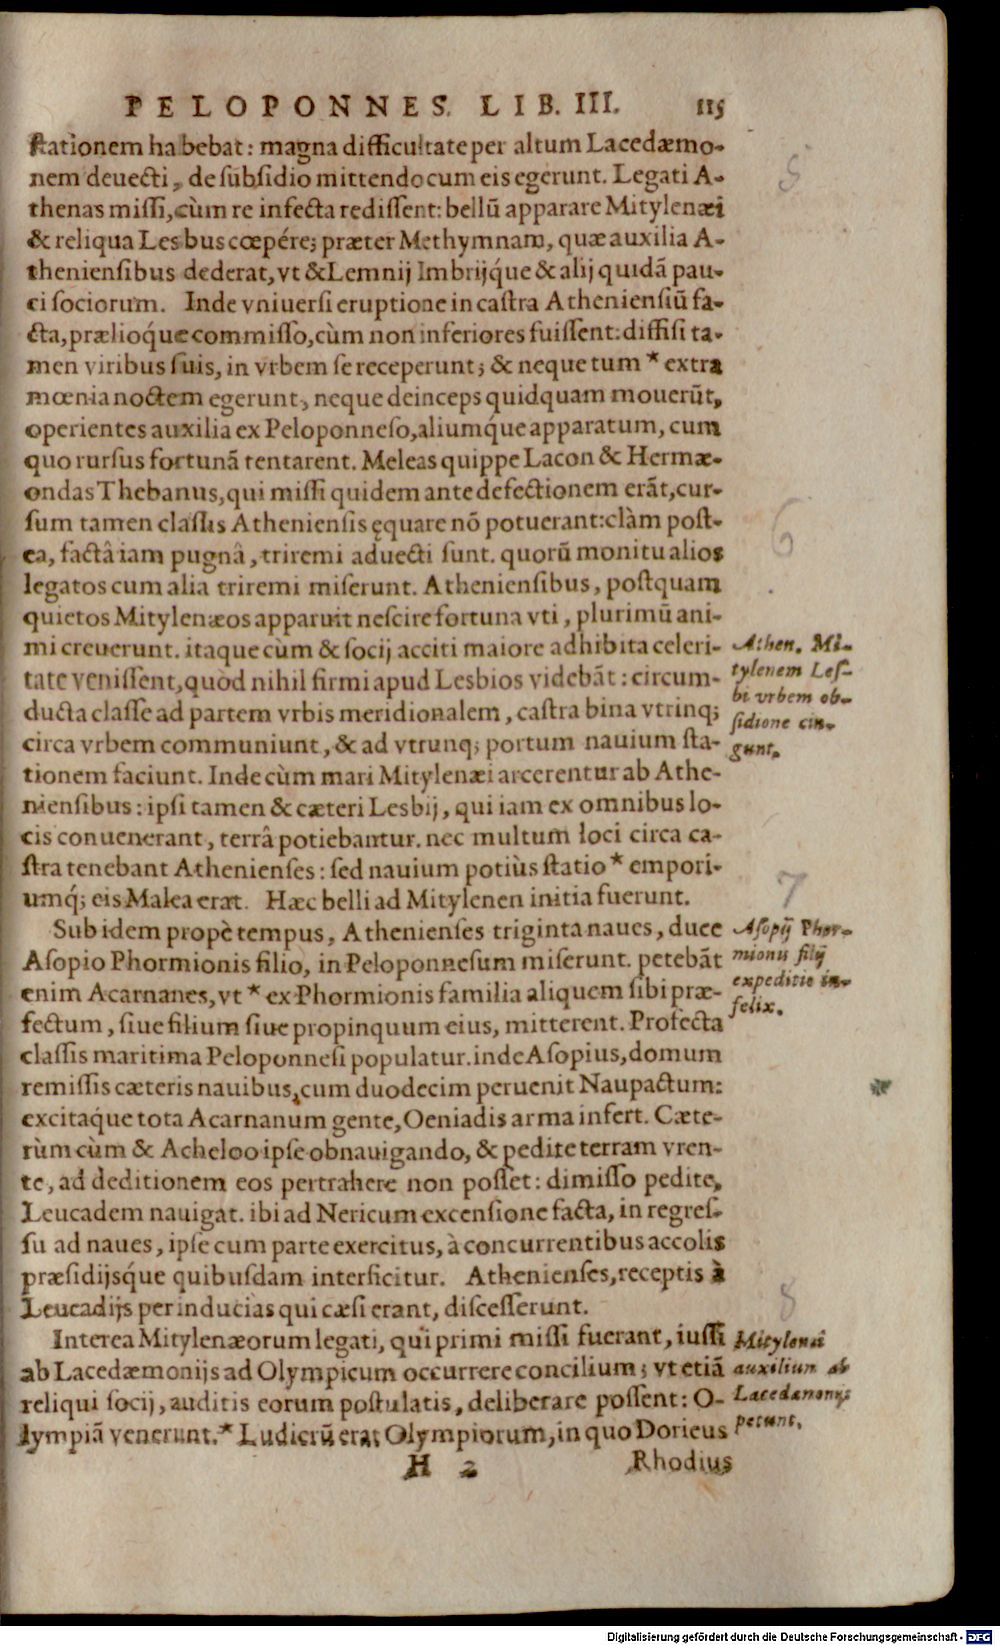 PELOPONNES. LIB. III. 115
ſtationem habebat: magna difficultate per altum Lacedæmo-
nem deuecti, de ſubſidio mittendo cum eis egerunt. Legati A-
thenas miſſi, cùm re infecta rediſſent: bellũ apparare Mitylenæi
& reliqua Lesbus cœpére; præter Methymnam, quæ auxilia A-
thenienſibus dederat, vt & Lemnij Imbrijq́ue & alij quidã pau-
ci ſociorum. Inde vniuerſi eruptione in caſtra Athenienſiũ fa-
cta, prælioq́ue commiſſo, cùm non inferiores fuiſſent: diffiſi ta-
men viribus ſuis, in vrbem ſe receperunt; & neque tum * extra
mœnia noctem egerunt, neque deinceps quidquam mouerũt,
operientes auxilia ex Peloponneſo, aliumq́ue apparatum, cum
quo rurſus fortunã tentarent. Meleas quippe Lacon & Hermæ-
ondas Thebanus, qui miſſi quidem ante defectionem erãt, cur-
ſum tamen claſſis Athenienſis ęquare nõ potuerant: clàm poſt-
ea, factâ iam pugnâ, triremi aduecti ſunt. quorũ monitu alios
legatos cum alia triremi miſerunt. Athenienſibus, poſtquam
quietos Mitylenæos apparuit neſcire fortuna vti, plurimũ ani-
mi creuerunt. itaque cùm & ſocij acciti maiore adhibita celeri-
tate veniſſent, quòd nihil firmi apud Lesbios videbãt: circum-
ducta claſſe ad partem vrbis meridionalem, caſtra bina vtrinq;
circa vrbem communiunt, & ad vtrunq; portum nauium ſta-
tionem faciunt. Inde cùm mari Mitylenæi arcerentur ab Athe-
nienſibus: ipſi tamen & cæteri Lesbij, qui iam ex omnibus lo-
cis conuenerant, terrâ potiebantur. nec multum loci circa ca-
ſtra tenebant Athenienſes: ſed nauium potiùs ſtatio * empori-
umq́; eis Malea erat. Hæc belli ad Mitylenen initia fuerunt.
Athen. Mi-
tylenem Leſ-
bi vrbem ob-
ſidione cin-
gunt.
Sub idem propè tempus, Athenienſes triginta naues, duce
Aſopio Phormionis filio, in Peloponneſum miſerunt. petebãt
enim Acarnanes, vt * ex Phormionis familia aliquem ſibi præ-
fectum, ſiue filium ſiue propinquum eius, mitterent. Profecta
claſſis maritima Peloponneſi populatur. inde Aſopius, domum
remiſſis cæteris nauibus, cum duodecim peruenit Naupactum:
excitaq́ue tota Acarnanum gente, Oeniadis arma infert. Cæte-
rùm cùm & Acheloo ipſe obnauigando, & pedite terram vren-
te, ad deditionem eos pertrahere non poſſet: dimiſſo pedite,
Leucadem nauigat. ibi ad Nericum excenſione facta, in regreſ-
ſu ad naues, ipſe cum parte exercitus, à concurrentibus accolis
præſidijsq́ue quibuſdam interficitur. Athenienſes, receptis à
Leucadijs per inducias qui cæſi erant, diſceſſerunt.
Aſopij Phor-
mionis filij
expeditio in-
felix.
Interea Mitylenæorum legati, qui primi miſſi fuerant, iuſſi
ab Lacedæmonijs ad Olympicum occurrere concilium; vt etiã
reliqui ſocij, auditis eorum poſtulatis, deliberare poſſent: O-
lympiã venerunt. * Ludicrũ erat Olympiorum, in quo Dorieus
Mitylenæi
auxilium ab
Lacedæmonijs
petunt.
H 2 Rhodius
5
6
7
8
Digitalisierung gefördert durch die Deutsche Forschungsgemeinschaft - DFG